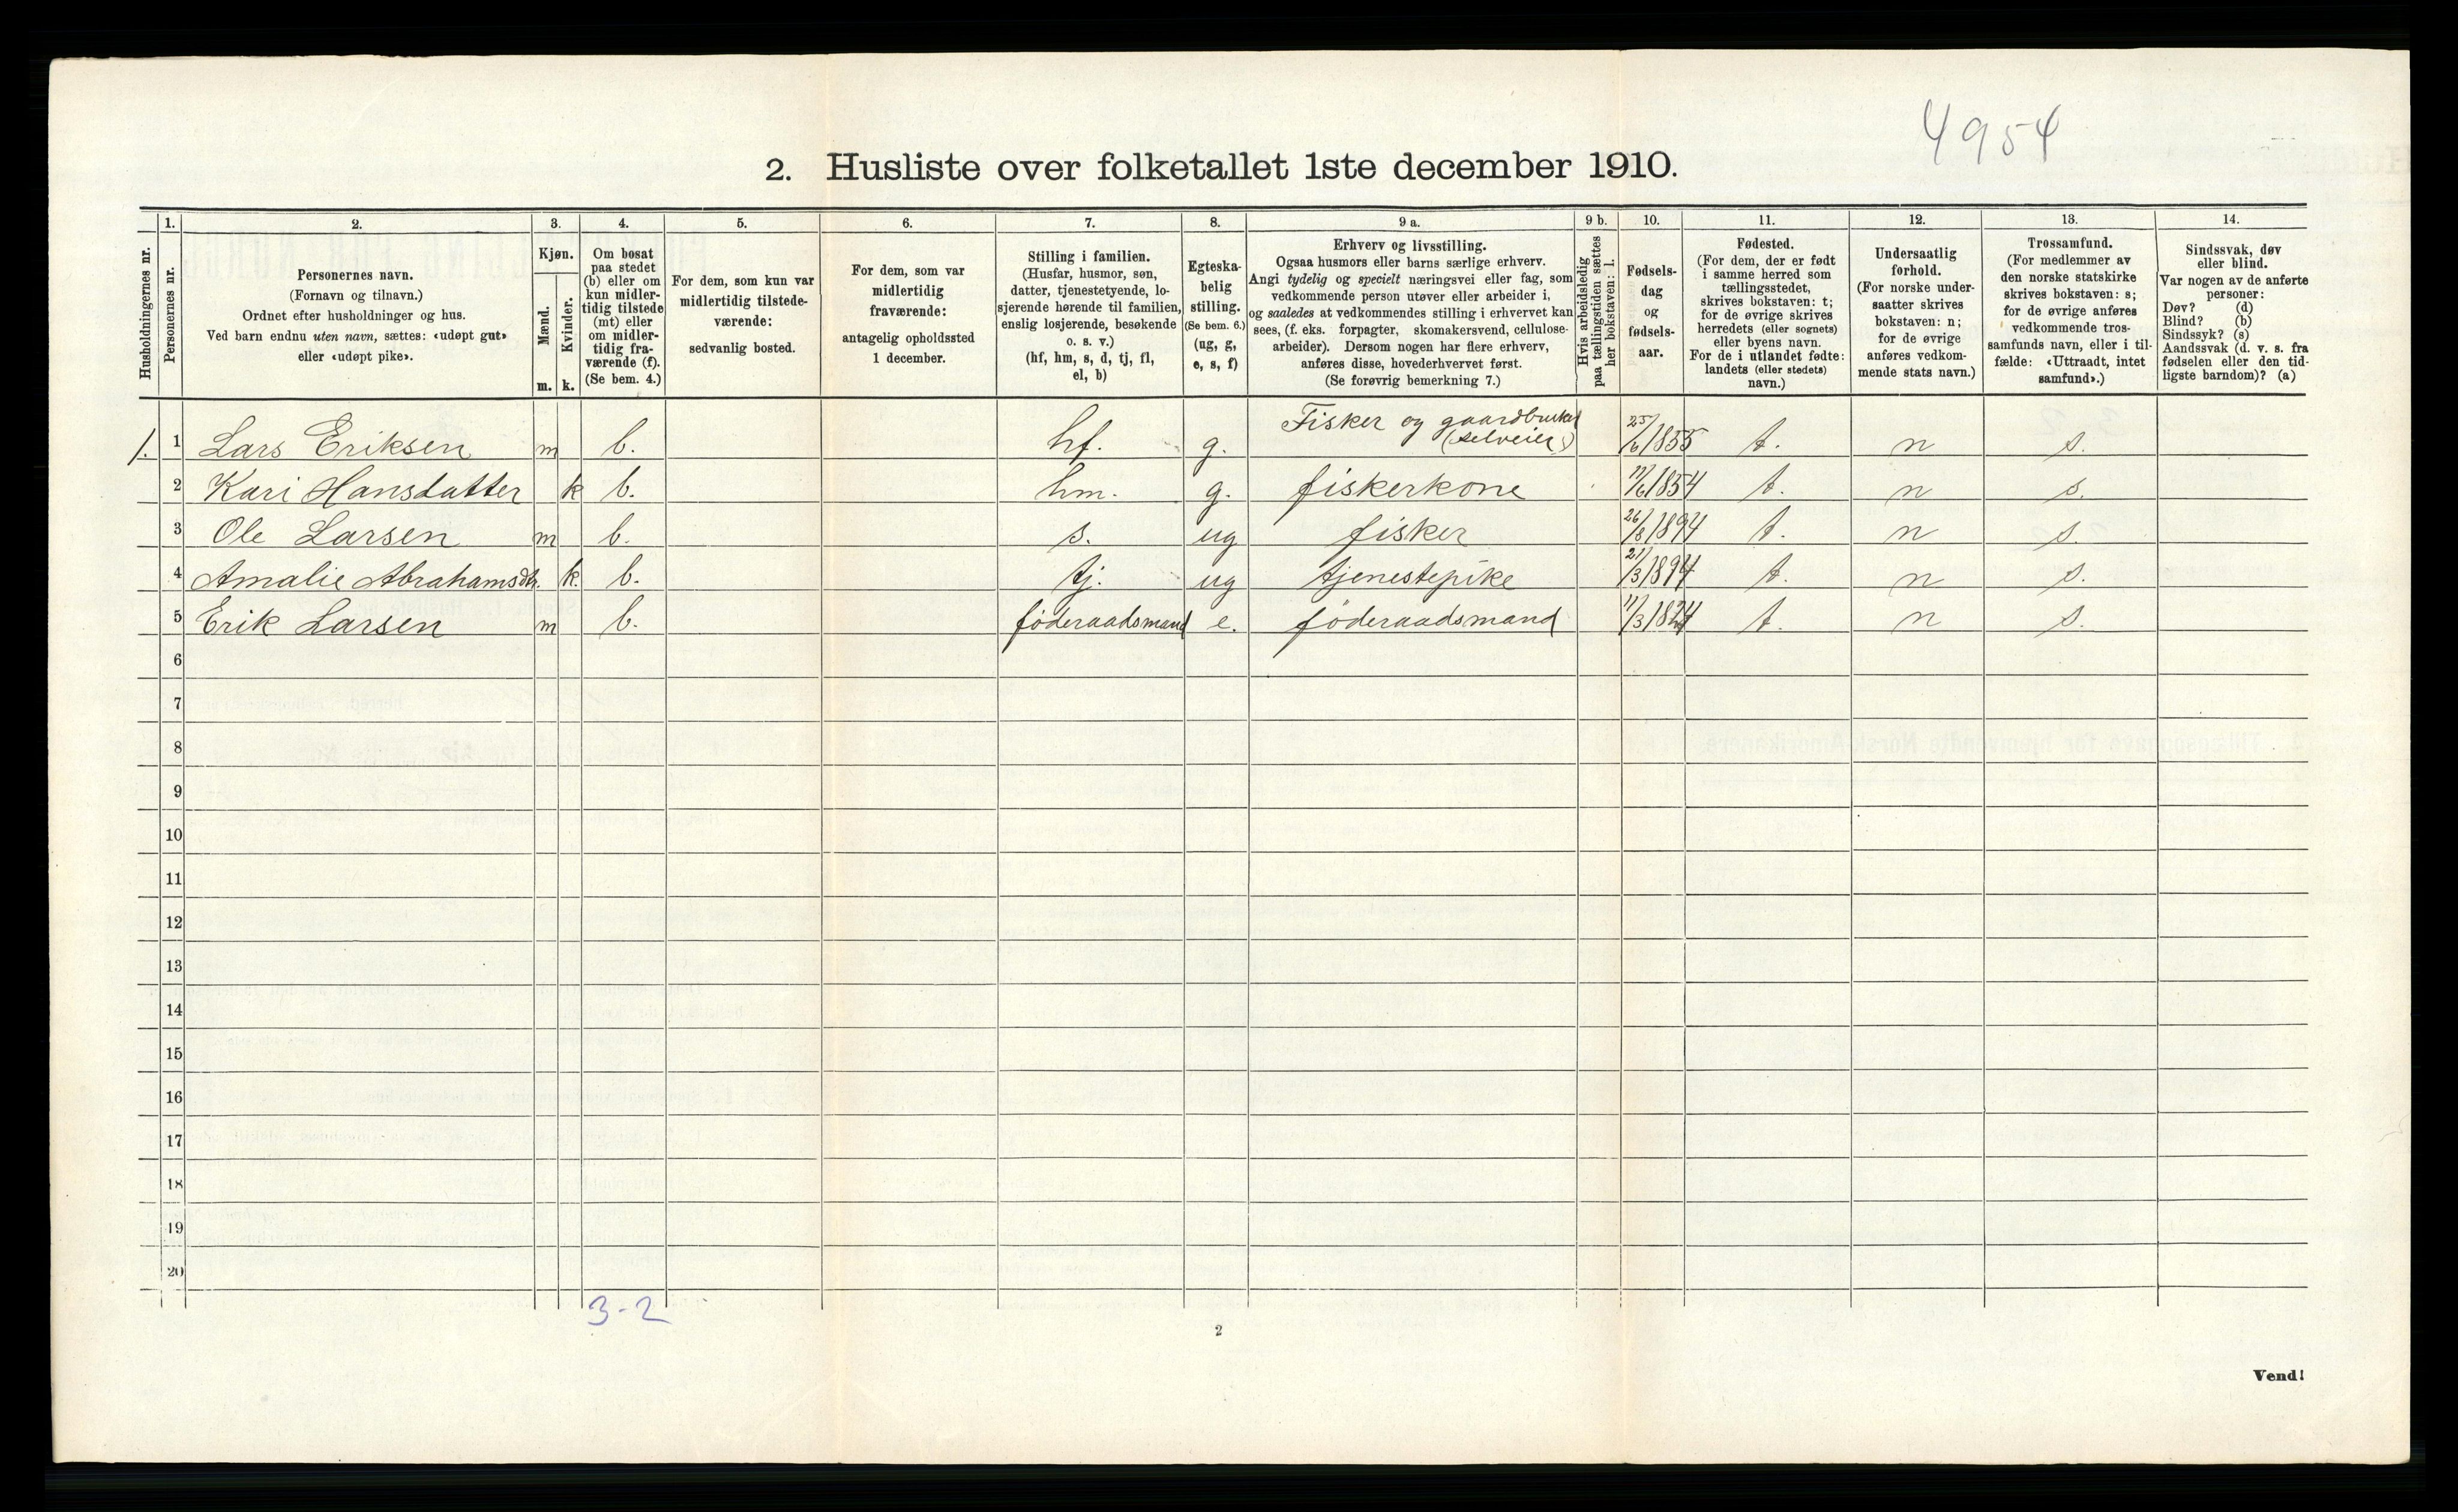 4954
2. Husliste over folketallet 1ste december 1910.
Husholdningernes nr.
1. Personernes nr.
2. Personernes navn.
(Fornavn og tilnavn.)
Ordnet efter husholdninger og hus.
Ved barn endnu uten navn, sættes: «udøpt gut»
eller «udøpt pike».
3. Kjøn.
Mænd. m.
Kvinder. k.
4. Om bosat
paa stedet
(b) eller om
kun midler-
tidig tilstede
(mt) eller
om midler-
tidig fra-
værende (f).
(Se bem. 4.)
5. For dem, som kun var
midlertidig tilstede-
værende:
sedvanlig bosted.
6. For dem, som var
midlertidig
fraværende:
antagelig opholdssted
1 december.
7. Stilling i familien.
(Husfar, husmor, søn,
datter, tjenestetyende, lo-
sjerende hørende til familien,
enslig losjerende, besøkende
o. s. v.)
(hf, hm, s, d, tj, fl,
el, b)
8. Egteska-
belig
stilling.
(Se bem. 6.)
(ug, g,
e, s, f)
9 a. Erhverv og livsstilling.
Ogsaa husmors eller barns særlige erhverv.
Angi tydelig og specielt næringsvei eller fag, som
vedkommende person utøver eller arbeider i,
og saaledes at vedkommendes stilling i erhvervet kan
sees, (f. eks. forpagter, skomakersvend, cellulose-
arbeider). Dersom nogen har flere erhverv,
anføres disse, hovederhvervet først.
(Se forøvrig bemerkning 7.)
9 b. Hvis arbeidsledig
paa tællingstiden sættes
her bokstaven: l.
10. Fødsels-
dag
og
fødsels-
aar.
11. Fødested.
(For dem, der er født
i samme herred som
tællingsstedet,
skrives bokstaven: t;
for de øvrige skrives
herredets (eller sognets)
eller byens navn.
For de i utlandet fødte:
landets (eller stedets)
navn.)
12. Undersaatlig
forhold.
(For norske under-
saatter skrives
bokstaven: n;
for de øvrige
anføres vedkom-
mende stats navn.)
13. Trossamfund.
(For medlemmer av
den norske statskirke
skrives bokstaven: s;
for de øvrige anføres
vedkommende tros-
samfunds navn, eller i til-
fælde: «Uttraadt, intet
samfund».)
14. Sindssvak, døv
eller blind.
Var nogen av de anførte
personer:
Døv? (d)
Blind? (b)
Sindssyk? (s)
Aandssvak (d. v. s. fra
fødselen eller den tid-
ligste barndom)? (a)
1. 1 Lars Eriksen m b. hf. g. Fisker og gaardbruker (selveier) 25/6 1855 t. n s.
2 Kari Hansdatter k b. hm. g. fiskerkone 11/6 1854 t. n s.
3 Ole Larsen m b. s. ug fisker 26/8 1894 t. n s.
4 Amalie Abrahamsdtr. k. b. tj. ug tjenestepike 21/3 1894 t. n s.
5 Erik Larsen m b. føderaadsmand e. føderaadsmand 11/3 1824 t. n s.
6
7
8
9
10
11
12
13
14
15
16
17
18
19
20
3-2
2
Vend!